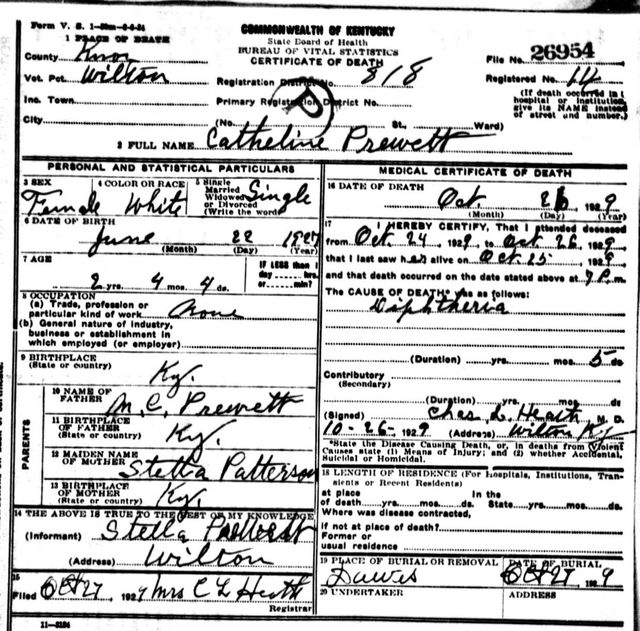 Form V. S. 1-50m-6-6-24
COMMONWEALTH OF KENTUCKY
State Board of Health
BUREAU OF VITAL STATISTICS
CERTIFICATE OF DEATH
1 PLACE OF DEATH
County Knox
File No. 26954
Vot. Pct. Wilton
Registration District No. 818
Registered No. 14
Inc. Town
Primary Registration District No.
(If death occurred in a hospital or institution, give its NAME instead of street and number.)
City
(No. St., Ward)
2 FULL NAME Catheline Prewett
PERSONAL AND STATISTICAL PARTICULARS
3 SEX
Female
4 COLOR OR RACE
White
5 Single
Married
Widowed
or Divorced
(Write the word)
Single
6 DATE OF BIRTH
June 22 1927
(Month) (Day) (Year)
7 AGE
2 yrs. 4 mos. 4 ds.
IF LESS than 1
day hrs.
or min?
8 OCCUPATION
(a) Trade, profession or
particular kind of work None
(b) General nature of industry,
business or establishment in
which employed (or employer)
9 BIRTHPLACE
(State or country) Ky.
PARENTS
10 NAME OF
FATHER M. C. Prewett
11 BIRTHPLACE
OF FATHER
(State or country) Ky.
12 MAIDEN NAME
OF MOTHER Stella Patterson
13 BIRTHPLACE
OF MOTHER
(State or country) Ky.
14 THE ABOVE IS TRUE TO THE BEST OF MY KNOWLEDGE
(Informant) Stella Prewett
(Address) Wilton
15
Filed Oct 27 1929 Mrs C L Heath
Registrar
11-3184
MEDICAL CERTIFICATE OF DEATH
16 DATE OF DEATH
Oct 26, 1929
(Month) (Day) (Year)
17 I HEREBY CERTIFY, That I attended deceased
from Oct 24, 1929, to Oct 26, 1929
that I last saw her alive on Oct 25, 1929
and that death occurred on the date stated above at 7 P.m.
The CAUSE OF DEATH* was as follows:
Diphtheria
(Duration) yrs. mos. 5 ds
Contributory
(Secondary)
(Duration) yrs. mos. ds
(Signed) Chas. L. Heath, M. D.
10-26-1929 (Address) Wilton Ky
*State the Disease Causing Death, or, in deaths from Violent
Causes state (1) Means of Injury; and (2) whether Accidental,
Suicidal or Homicidal.
18 LENGTH OF RESIDENCE (For Hospitals, Institutions, Transients or Recent Residents)
at place
of death yrs. mos. ds.
In the
State yrs. mos. ds.
Where was disease contracted,
if not at place of death?
Former or
usual residence
19 PLACE OF BURIAL OR REMOVAL
Dawes
DATE OF BURIAL
Oct 27 1929
20 UNDERTAKER
ADDRESS